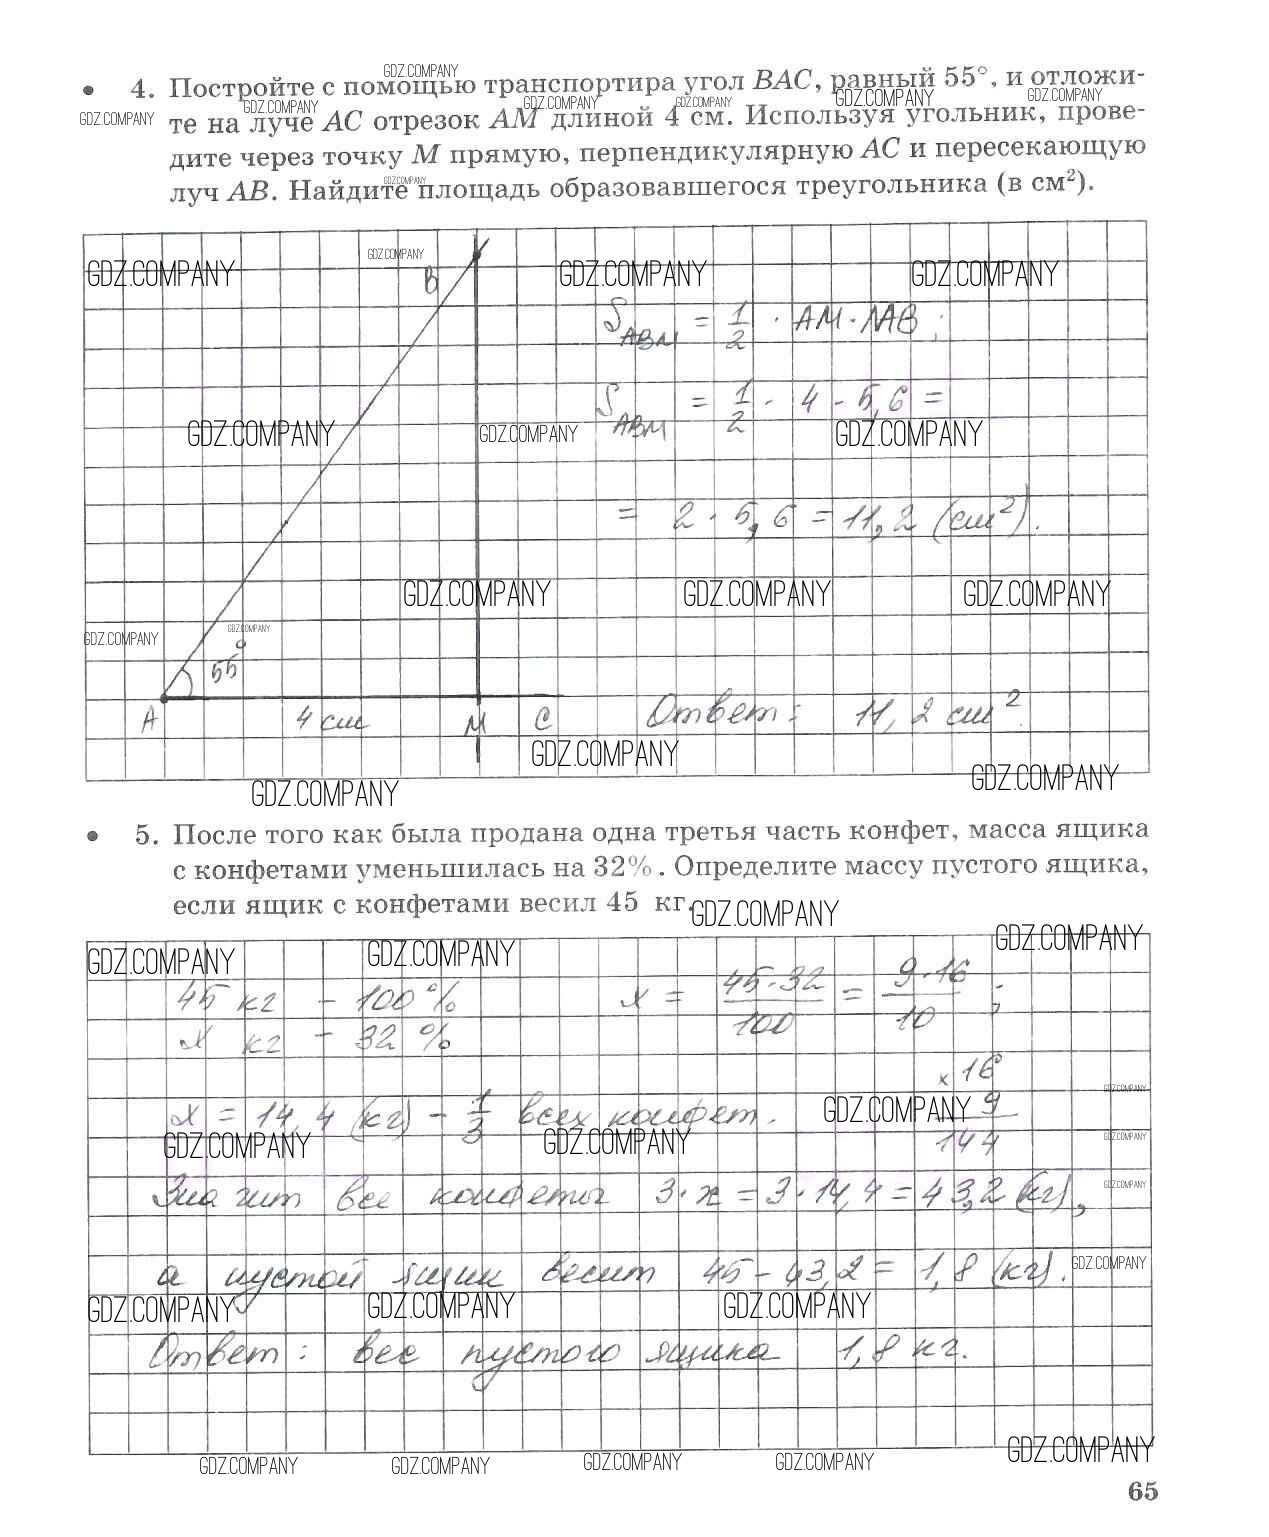 GDZ.COMPANY
• 4. Постройте с помощью транспортира угол BAC, равный 55°, и отложи-
GDZ.COMPANY GDZ.COMPANY GDZ.COMPANY GDZ.COMPANY GDZ.COMPANY GDZ.COMPANY
те на луче AC отрезок AM длиной 4 см. Используя угольник, прове-
дите через точку M прямую, перпендикулярную AC и пересекающую
GDZ.COMPANY
луч AB. Найдите площадь образовавшегося треугольника (в см²).
GDZ.COMPANY
GDZ.COMPANY GDZ.COMPANY GDZ.COMPANY
B
S ABM = 1/2 · AM · MB ;
S ABM = 1/2 · 4 · 5,6 =
GDZ.COMPANY GDZ.COMPANY GDZ.COMPANY
= 2 · 5,6 = 11,2 (см²).
GDZ.COMPANY GDZ.COMPANY GDZ.COMPANY
GDZ.COMPANY GDZ.COMPANY
55°
A 4 см M C Ответ: 11,2 см².
GDZ.COMPANY
GDZ.COMPANY GDZ.COMPANY
• 5. После того как была продана одна третья часть конфет, масса ящика
с конфетами уменьшилась на 32%. Определите массу пустого ящика,
если ящик с конфетами весил 45 кг.
GDZ.COMPANY
GDZ.COMPANY GDZ.COMPANY GDZ.COMPANY
45 кг – 100% x = 45·32/100 = 9·16/10 ;
x кг – 32%
× 16
GDZ.COMPANY
x = 14,4 (кг) – 1/3 всех конфет. 9
GDZ.COMPANY
144
GDZ.COMPANY GDZ.COMPANY GDZ.COMPANY
Значит все конфеты 3·x = 3·14,4 = 43,2 (кг),
GDZ.COMPANY
а пустой ящик весит 45 – 43,2 = 1,8 (кг).
GDZ.COMPANY
GDZ.COMPANY GDZ.COMPANY GDZ.COMPANY
Ответ: вес пустого ящика 1,8 кг.
GDZ.COMPANY
GDZ.COMPANY GDZ.COMPANY GDZ.COMPANY GDZ.COMPANY
65